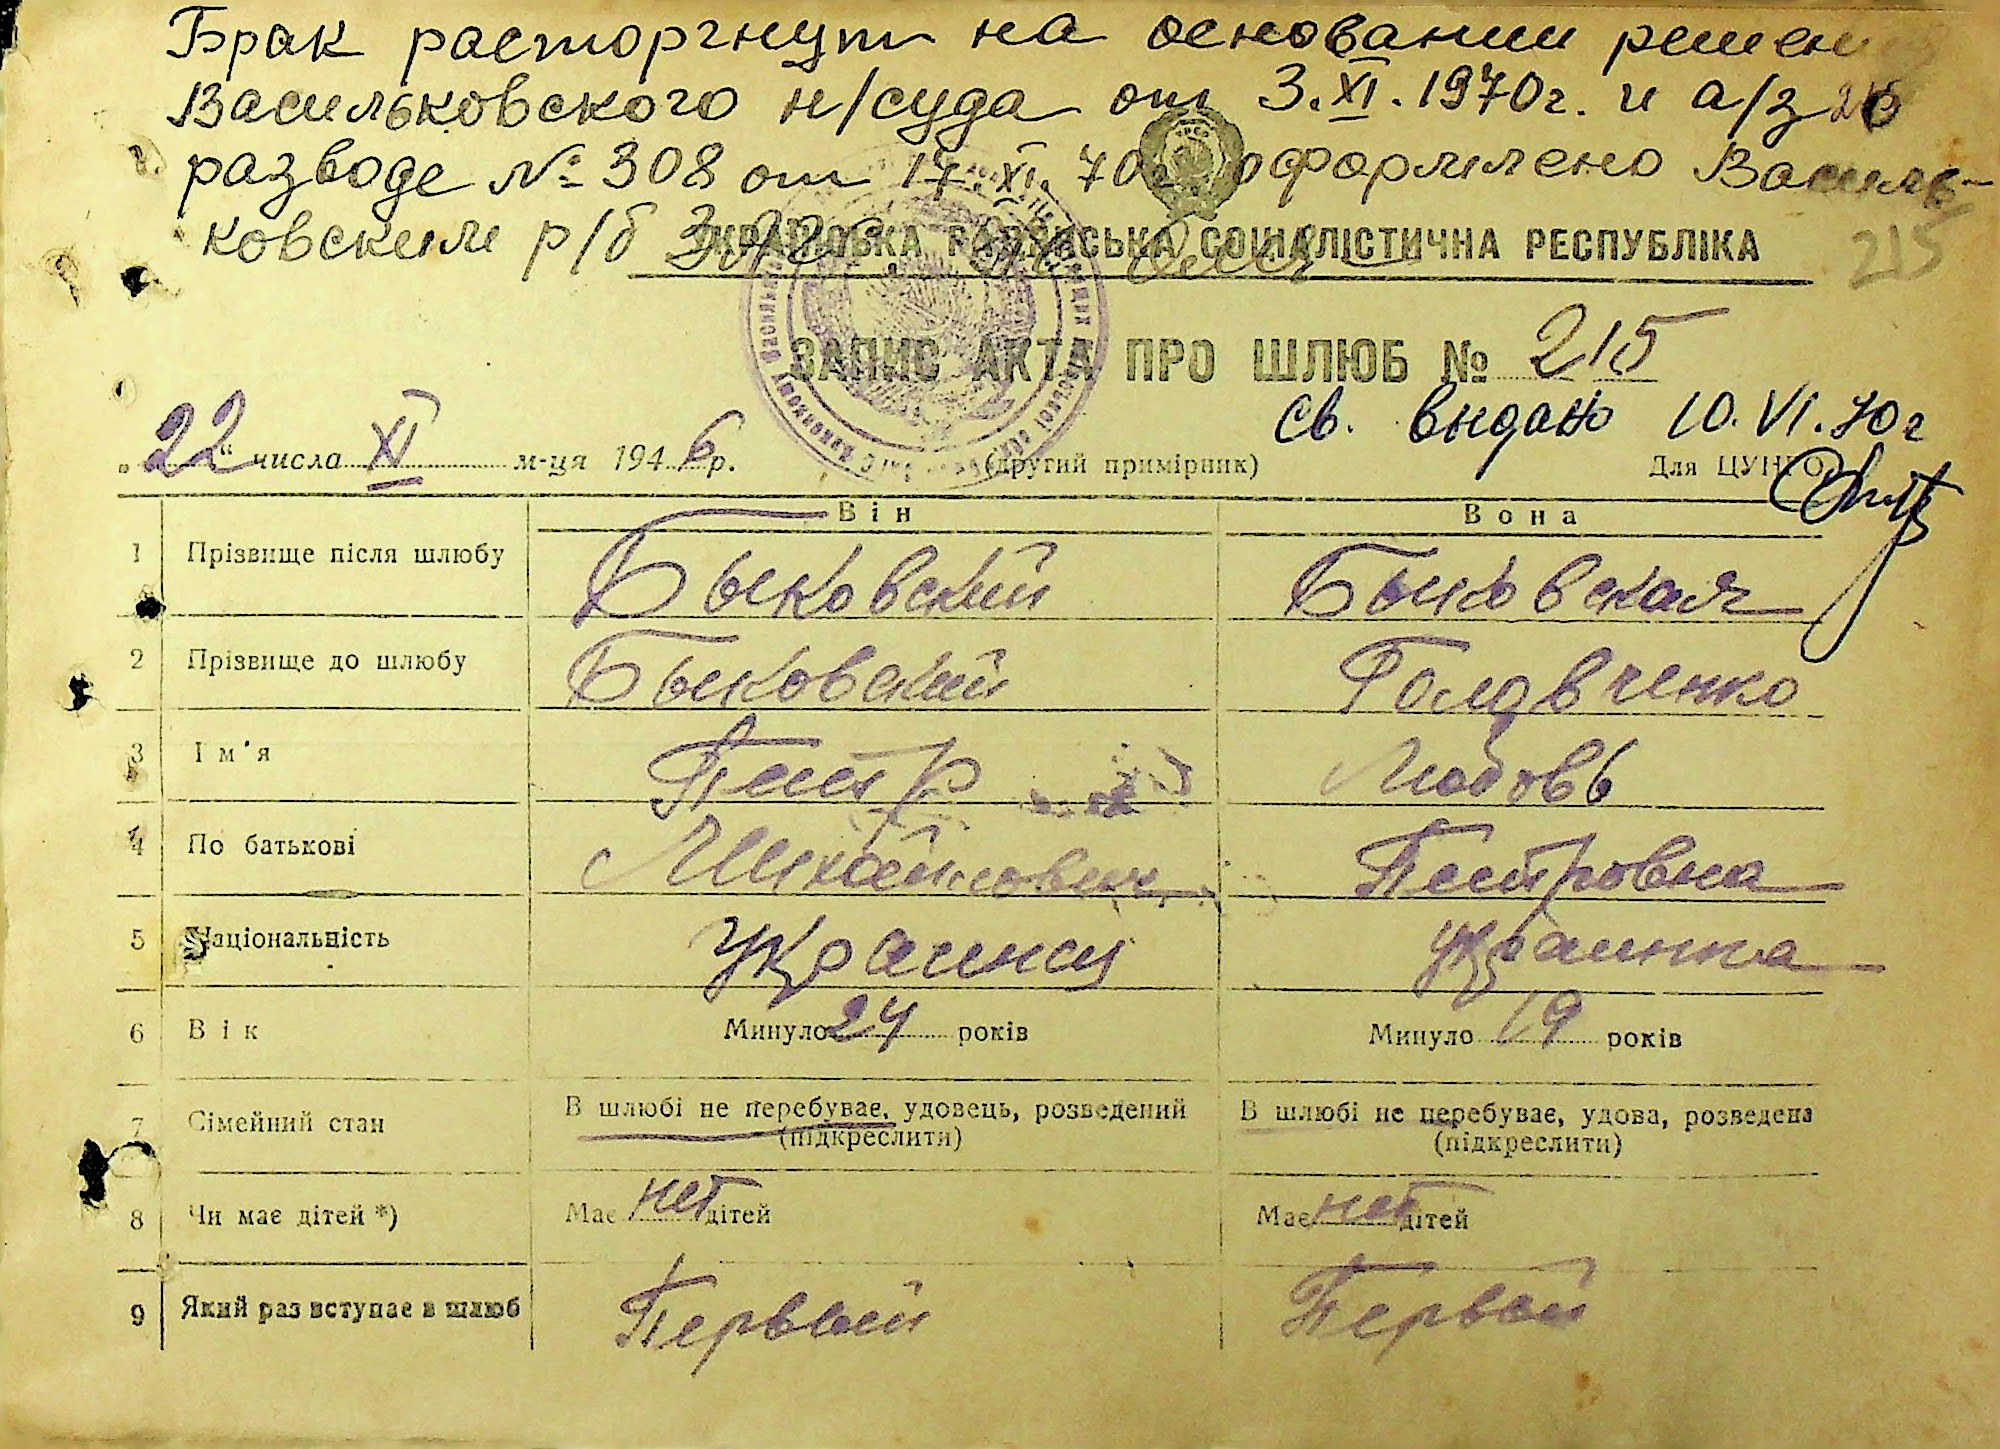 Брак расторгнут на основании решен
Васильковского н/суда от 3.XI.1970г. и а/з о
разводе № 308 от 17.XI.70г. оформлено Василь-
ковским р/б ЗАГС
215
УКРАЇНСЬКА РАДЯНСЬКА СОЦІАЛІСТИЧНА РЕСПУБЛІКА
ЗАПИС АКТА ПРО ШЛЮБ № 215
св. выдано 10.VI.70г
„22“ числа XI м-ця 1946 р. (другий примірник) Для ЦУНГО
Він Вона
1 Прізвище після шлюбу Быковский Быковская
2 Прізвище до шлюбу Быковский Головченко
3 Ім'я Петр Любовь
4 По батькові Михайлович Петровна
5 Національність украинец украинка
6 Вік Минуло 24 років Минуло 19 років
7 Сімейний стан В шлюбі не перебуває, удовець, розведений В шлюбі не перебуває, удова, розведена
(підкреслити) (підкреслити)
8 Чи має дітей *) Має нет дітей Має нет дітей
9 Який раз вступає в шлюб Первый Первый